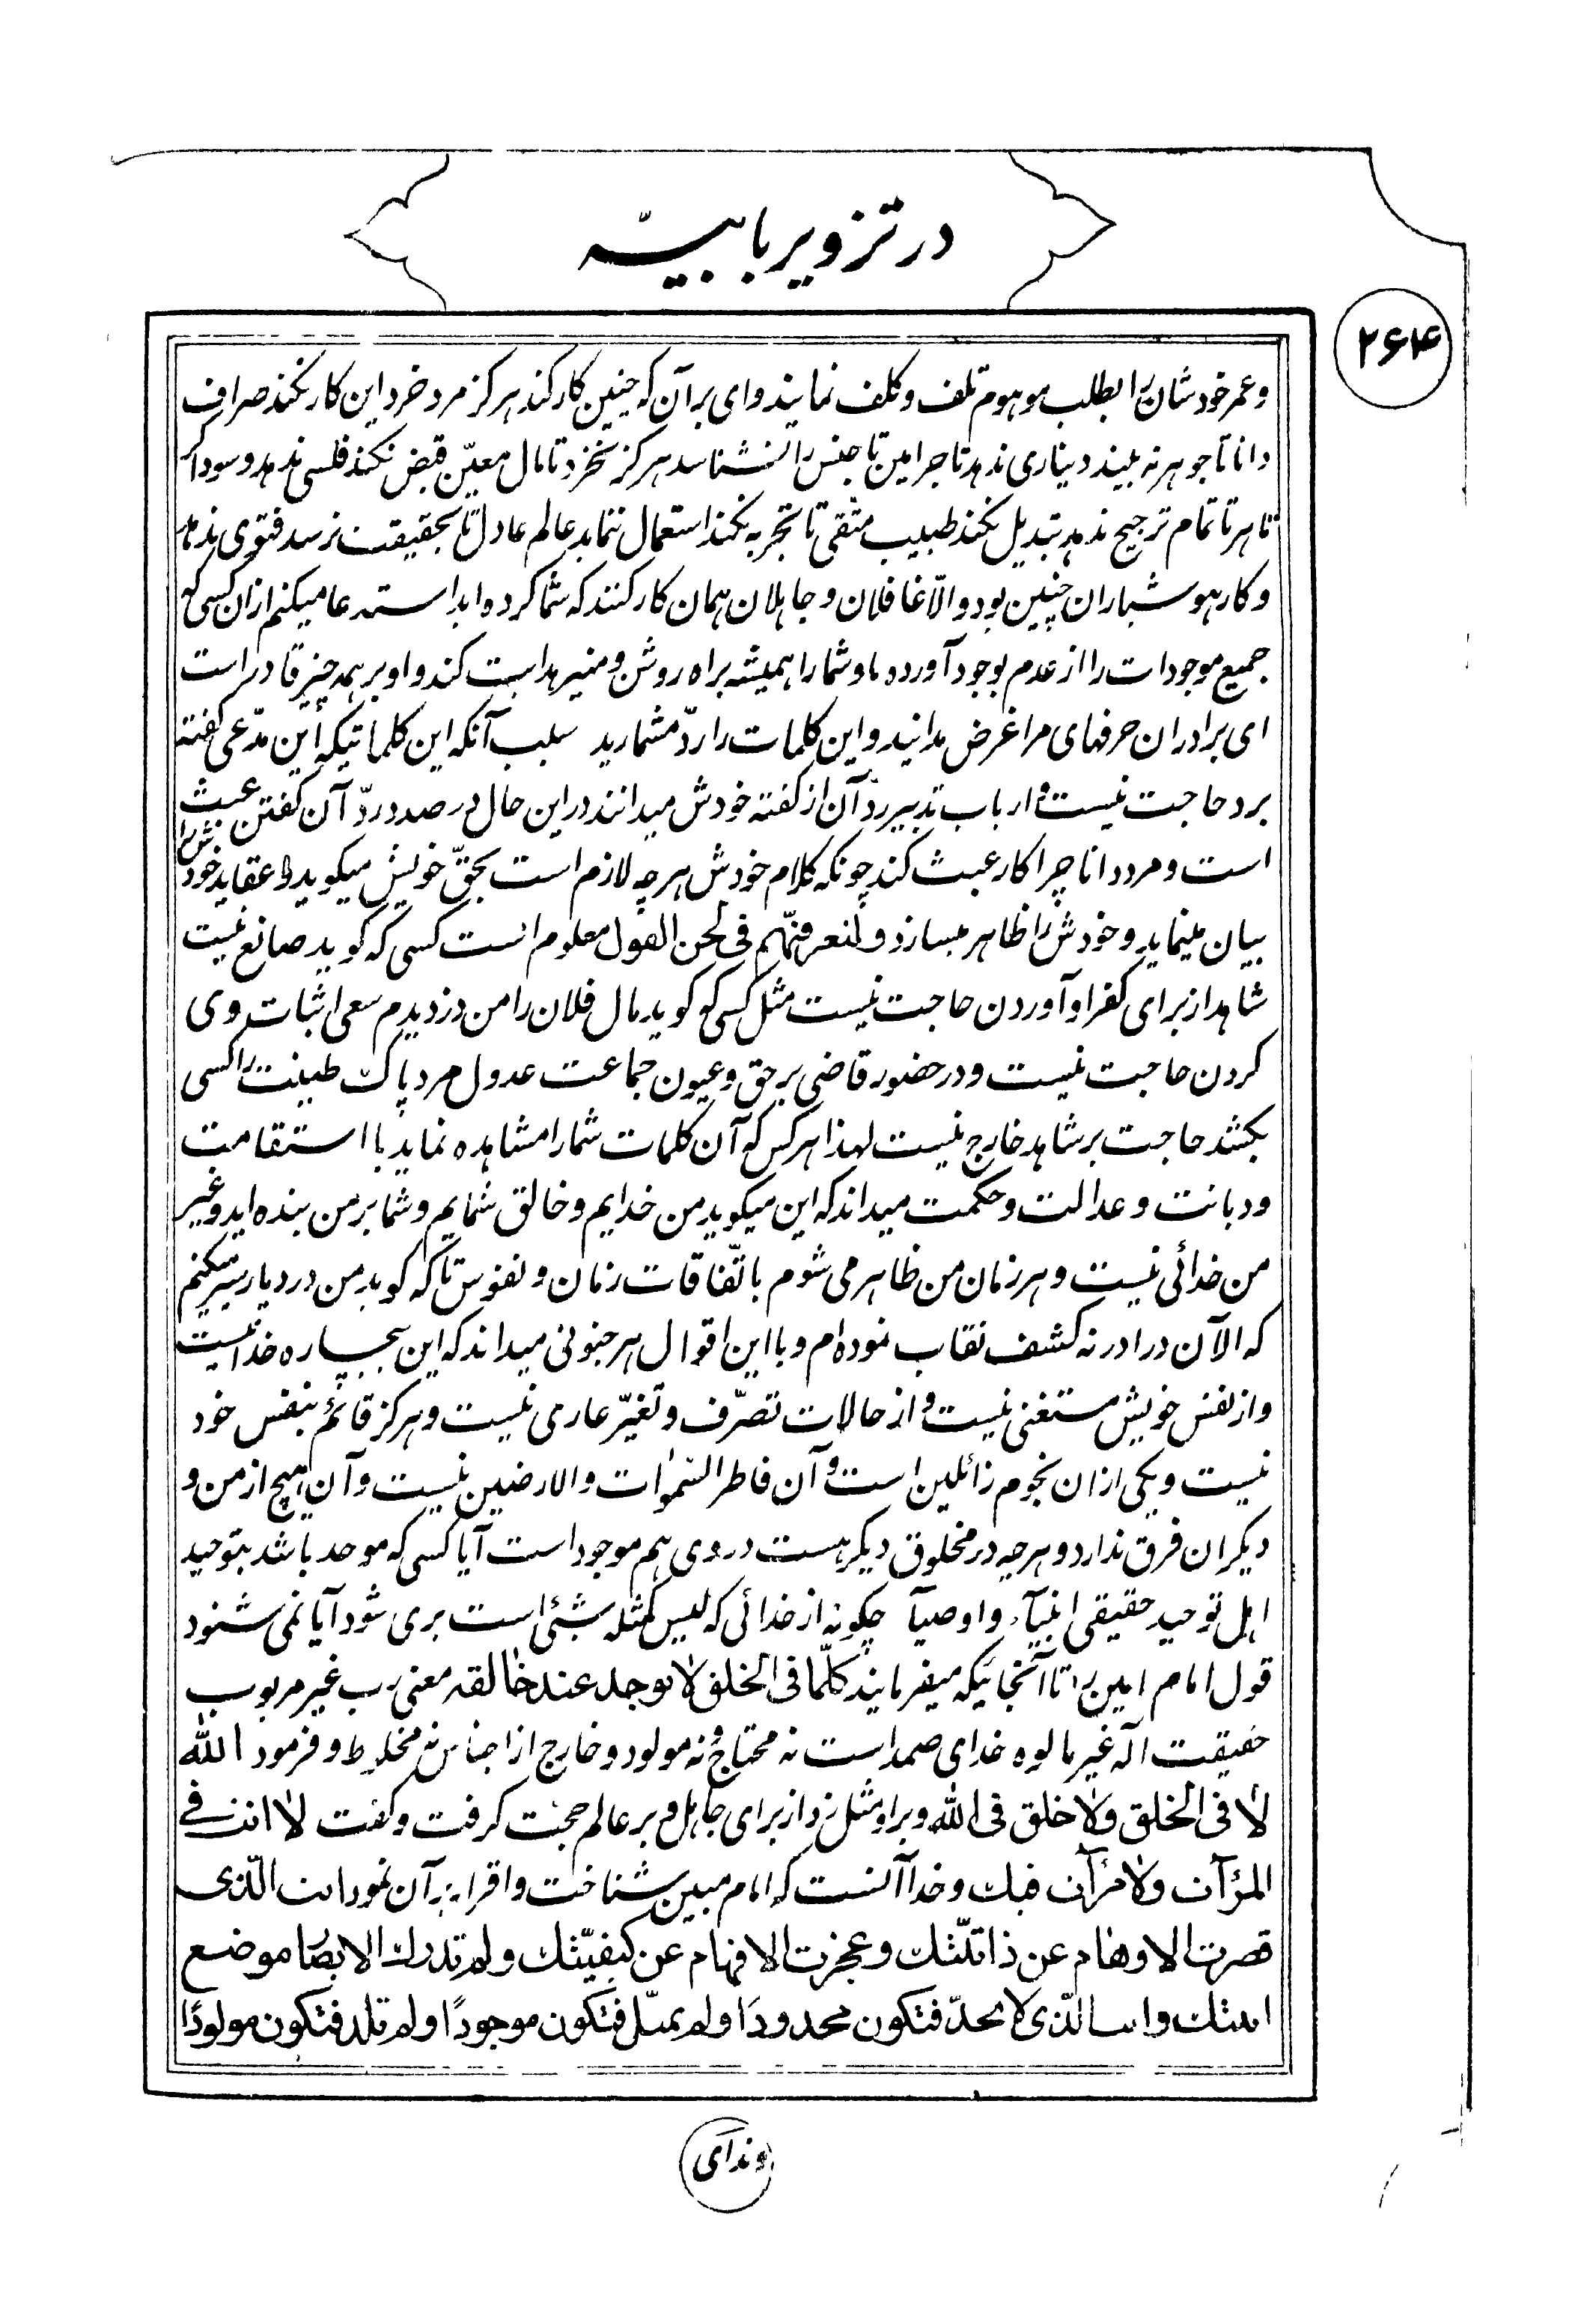 در تزویر بابیّه
۲۶۴
و عمر خودشان را بطلب موهوم تلف و کلف نمایند وای بر آن که چنین کار کند هرکز مرد خرد این کار نکند صراف
دانا تا جوهر نه بیند دیناری ندهد تاجر امین تا جنس را نشناسد هرکز نخرد تا مال معیّن قبض نکند فلسی ندهد و سوداکر
ماهر تا تمام ترجیح ندهد تبدیل نکند طبیب متقی تا تجربه نکند استعمال ننماید عالم عادل تا بحقیقت نرسد فتوی ندهد
و کار هوشیاران چنین بود والّا غافلان و جاهلان همان کار کنند که شما کرده اید استدعا میکنم ازان کسی که
جمیع موجودات را از عدم بوجود آورده ما و شما را همیشه براه روشن و منیر هدایت کند و او بر همه چیز قادر است
ای برادران حرفهای مرا غرض مدانید و این کلمات را ردّ مشمارید سبب آنکه این کلماتیکه این مدّعی کفته
برد حاجت نیست و ارباب تدبیر ردّ آن از کفته خودش میدانند در این حال در صدد ردّ آن کفتن عبث
است و مرد دانا چرا کار عبث کند چونکه کلام خودش هرچه لازم است بحقّ خویش میکوید و عقاید خودش را
بیان مینماید و خودش را ظاهر میسازد و لتعرفنّهم فی لحن القول معلوم است کسی که کوید صانع نیست
شاهد از برای کفر او آوردن حاجت نیست مثل کسی که کوید مال فلان را من دزدیدم سعی اثبات وی
کردن حاجت نیست و در حضور قاضی بر حق و عیون جماعت عدول مرد پاک طینت را کسی
بکشد حاجت بر شاهد خارج نیست لهذا هر کس که آن کلمات شما را مشاهده نماید با استقامت
و دیانت و عدالت و حکمت میداند که این میکوید من خدایم و خالق شمایم و شما بر من بنده اید و غیر
من خدائی نیست و هر زمان من ظاهر می شوم باتّفاقات زمان و نفوس تا که کوید من در دیار سیر میکنم
که الآن در ادرنه کشف نقاب نموده ام و با این اقوال هر جنونی میداند که این بیچاره خدا نیست
و از نفس خویش مستغنی نیست و از حالات تصرّف و تغیّر عاری نیست و هرکز قائم بنفس خود
نیست و یکی ازان نجوم زائلین است و آن فاطر السّموات والارضین نیست و آن هیچ از من و
دیکران فرق ندارد و هرچه در مخلوق دیکر هست در وی هم موجود است آیا کسی که موحد باشد بتوحید
اهل توحید حقیقی انبیآء و اوصیآ چکونه از خدائی که لیس کمثله شیٔ است بری شود آیا نمی شنود
قول امام امین را تا آنجائیکه میفرمایند کلّما فی الخلق لا یوجد عند خالقه معنی رب غیر مربوب
حقیقت آله غیر مالوه خدای صمد است نه محتاج و نه مولود و خارج از اجناس نه مخلوط و فرمود الله
لا فی الخلق ولا خلق فی الله و بر او مثل زد از برای جاهل و بر عالم حجت کرفت و کفت لا انت فی
المرآت ولا مرآت فیک و خدا آنست که امام مبین شناخت و اقرار بآن نمود انت الّذی
قصرت الاوهام عن ذاتیّتک و عجزت الافهام عن کیفیّتک و لم تدرک الابصار موضع
اینیّتک و انت الّذی لا تحدّ فتکون محدودًا و لم تمثّل فتکون موجودًا و لم تلد فتکون مولودًا
وندای